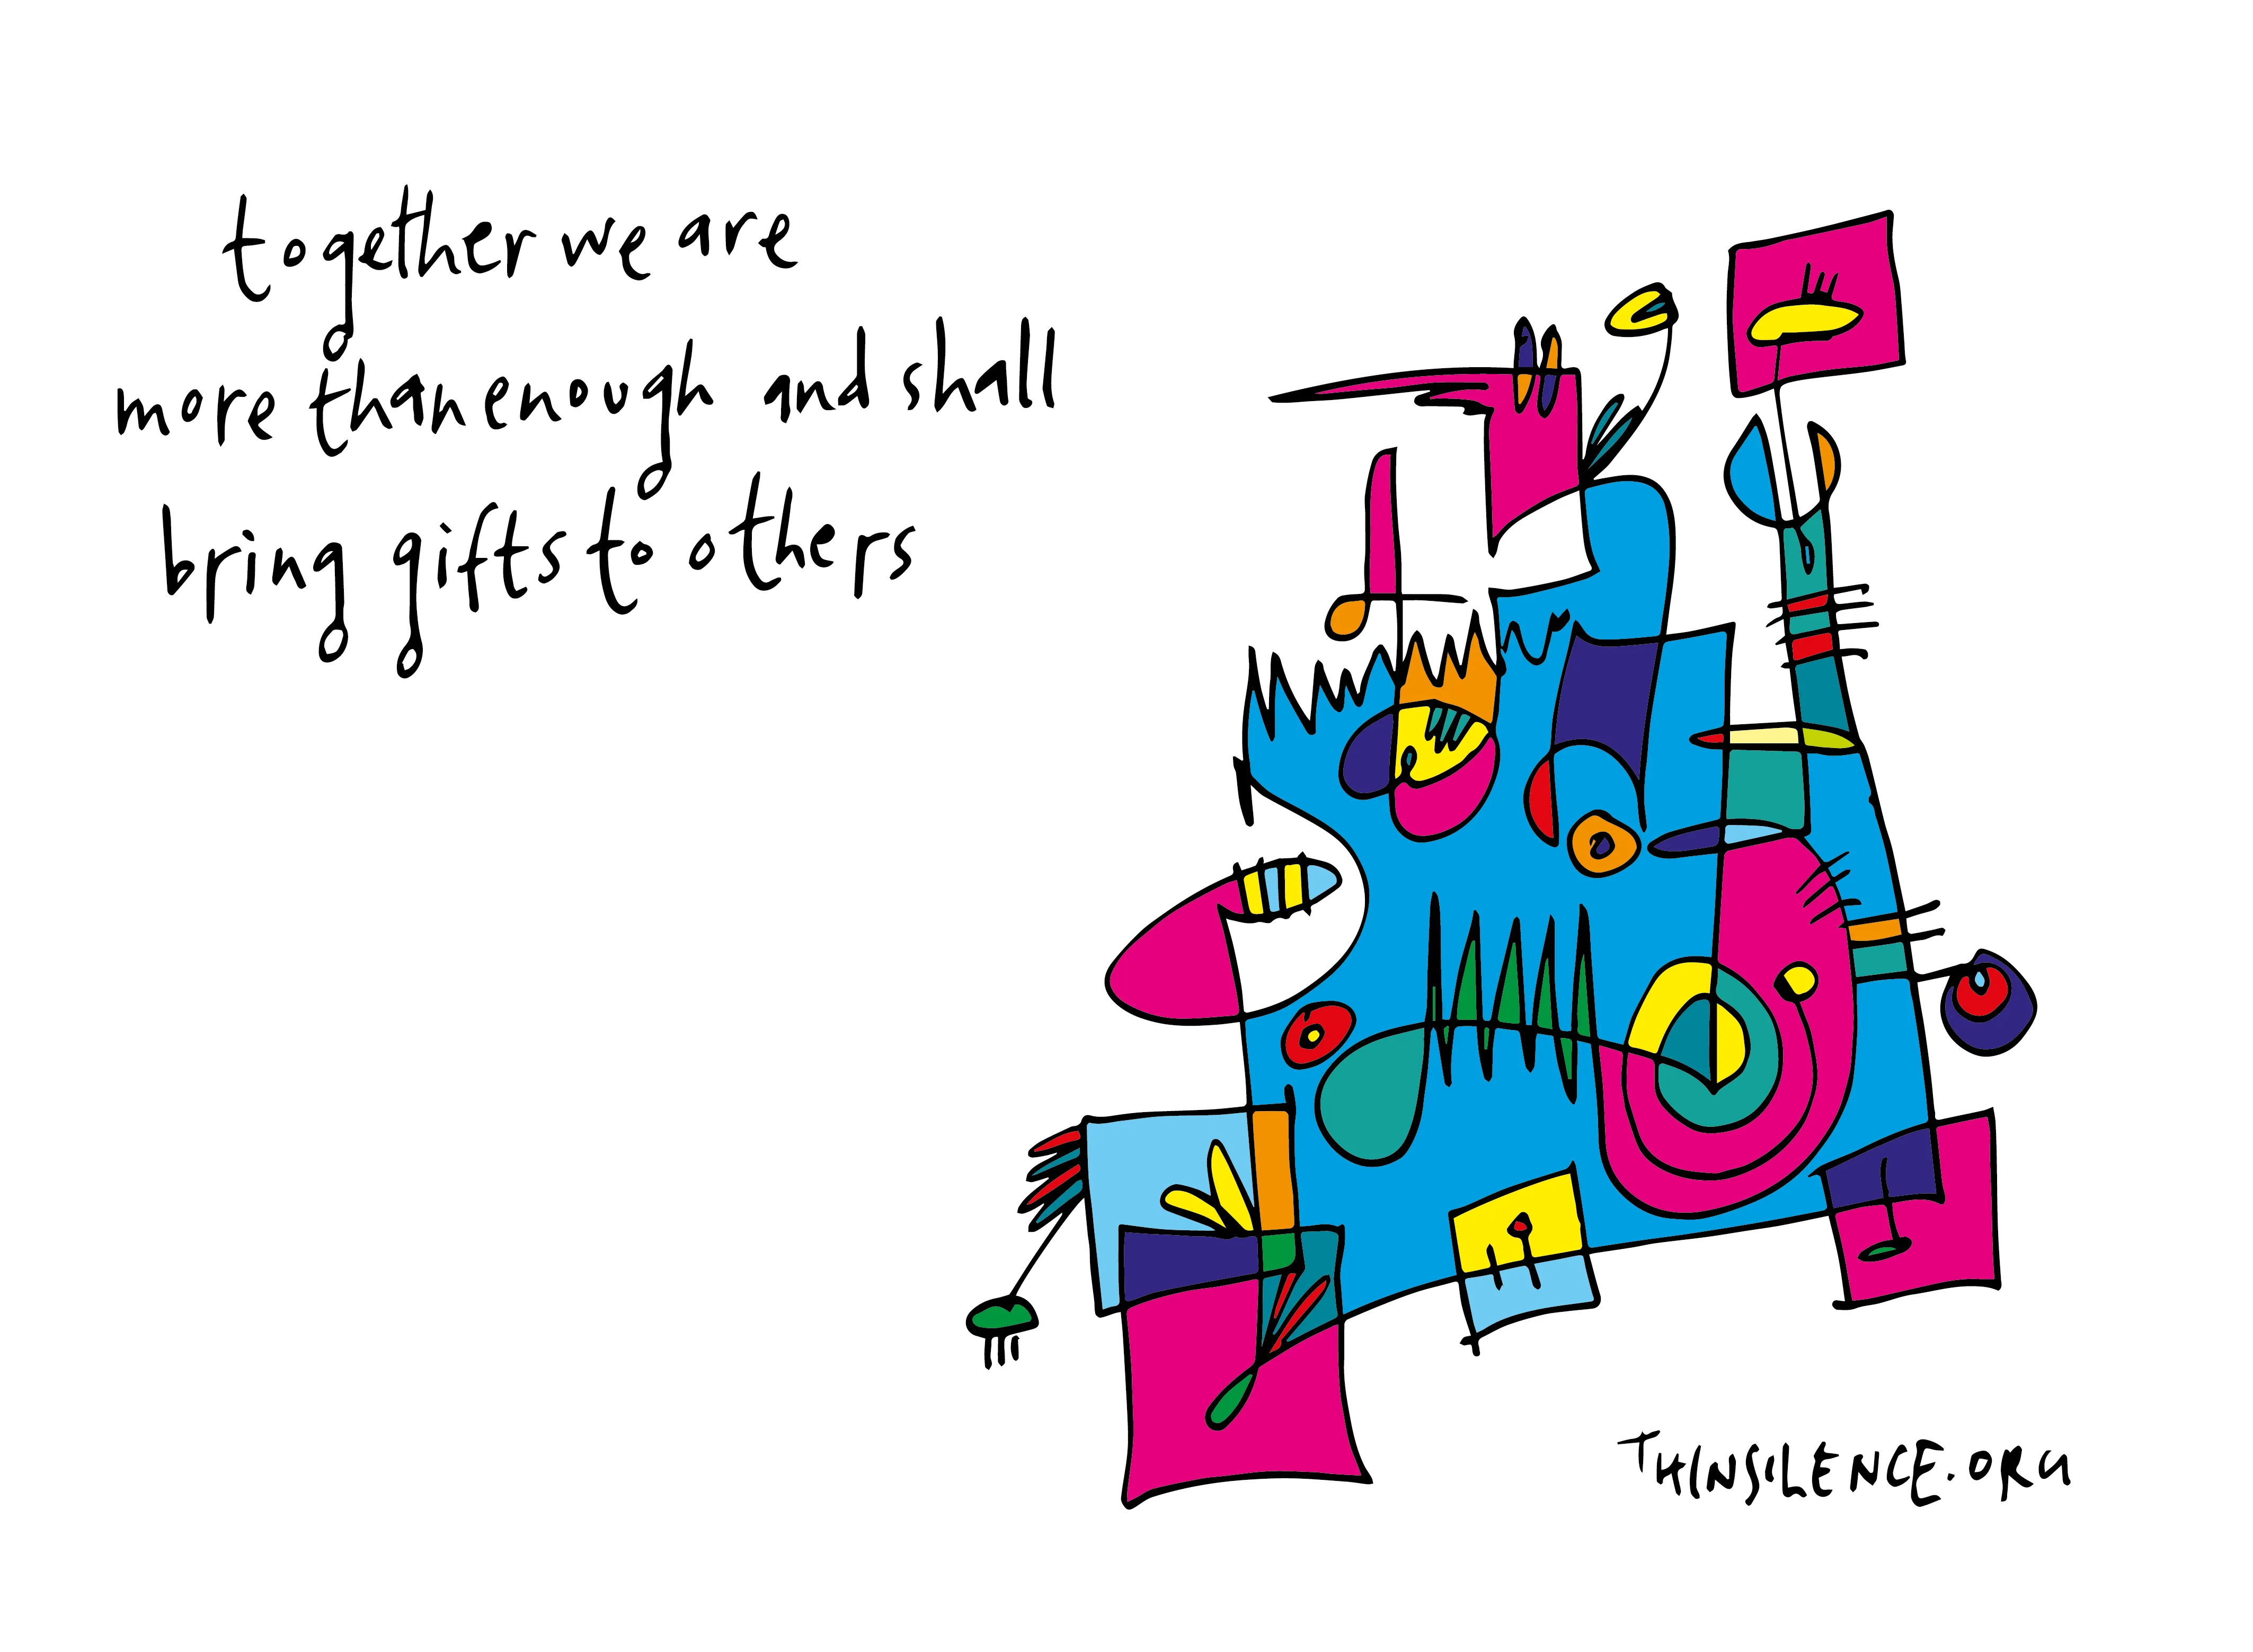 together we are
more than enough and shall
bring gifts to others
THINSILENCE.ORG